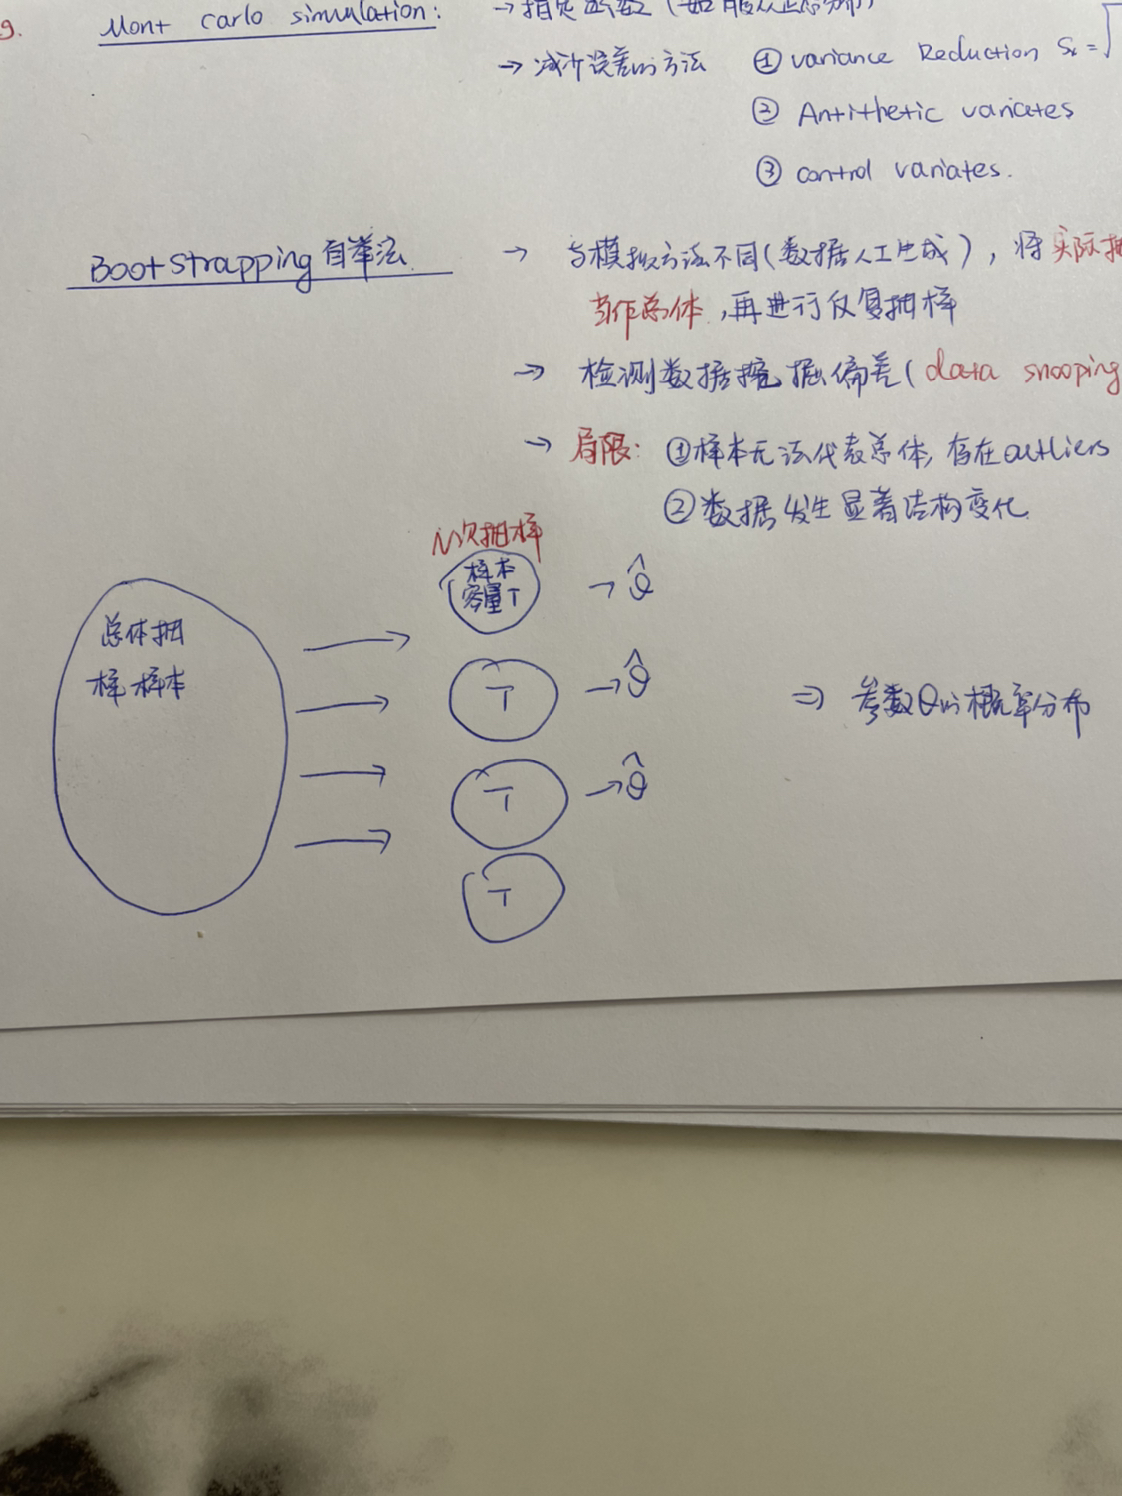 9. Mont carlo simulation: → 指定函数 (如服从正态分布)
→ 减少误差的方法 ① variance Reduction Sx = √
② Antithetic variates
③ control variates.
Bootstrapping 自举法 → 与模拟方法不同(数据人工生成), 将实际抽
当作总体, 再进行反复抽样
→ 检测数据挖掘偏差(data snooping
→ 局限: ①样本无法代表总体, 存在outliers
②数据发生显著结构变化
N次抽样
样本
容量T → θ̂
总体抽
样样本
T → θ̂
⇒ 参数θ的概率分布
T → θ̂
T